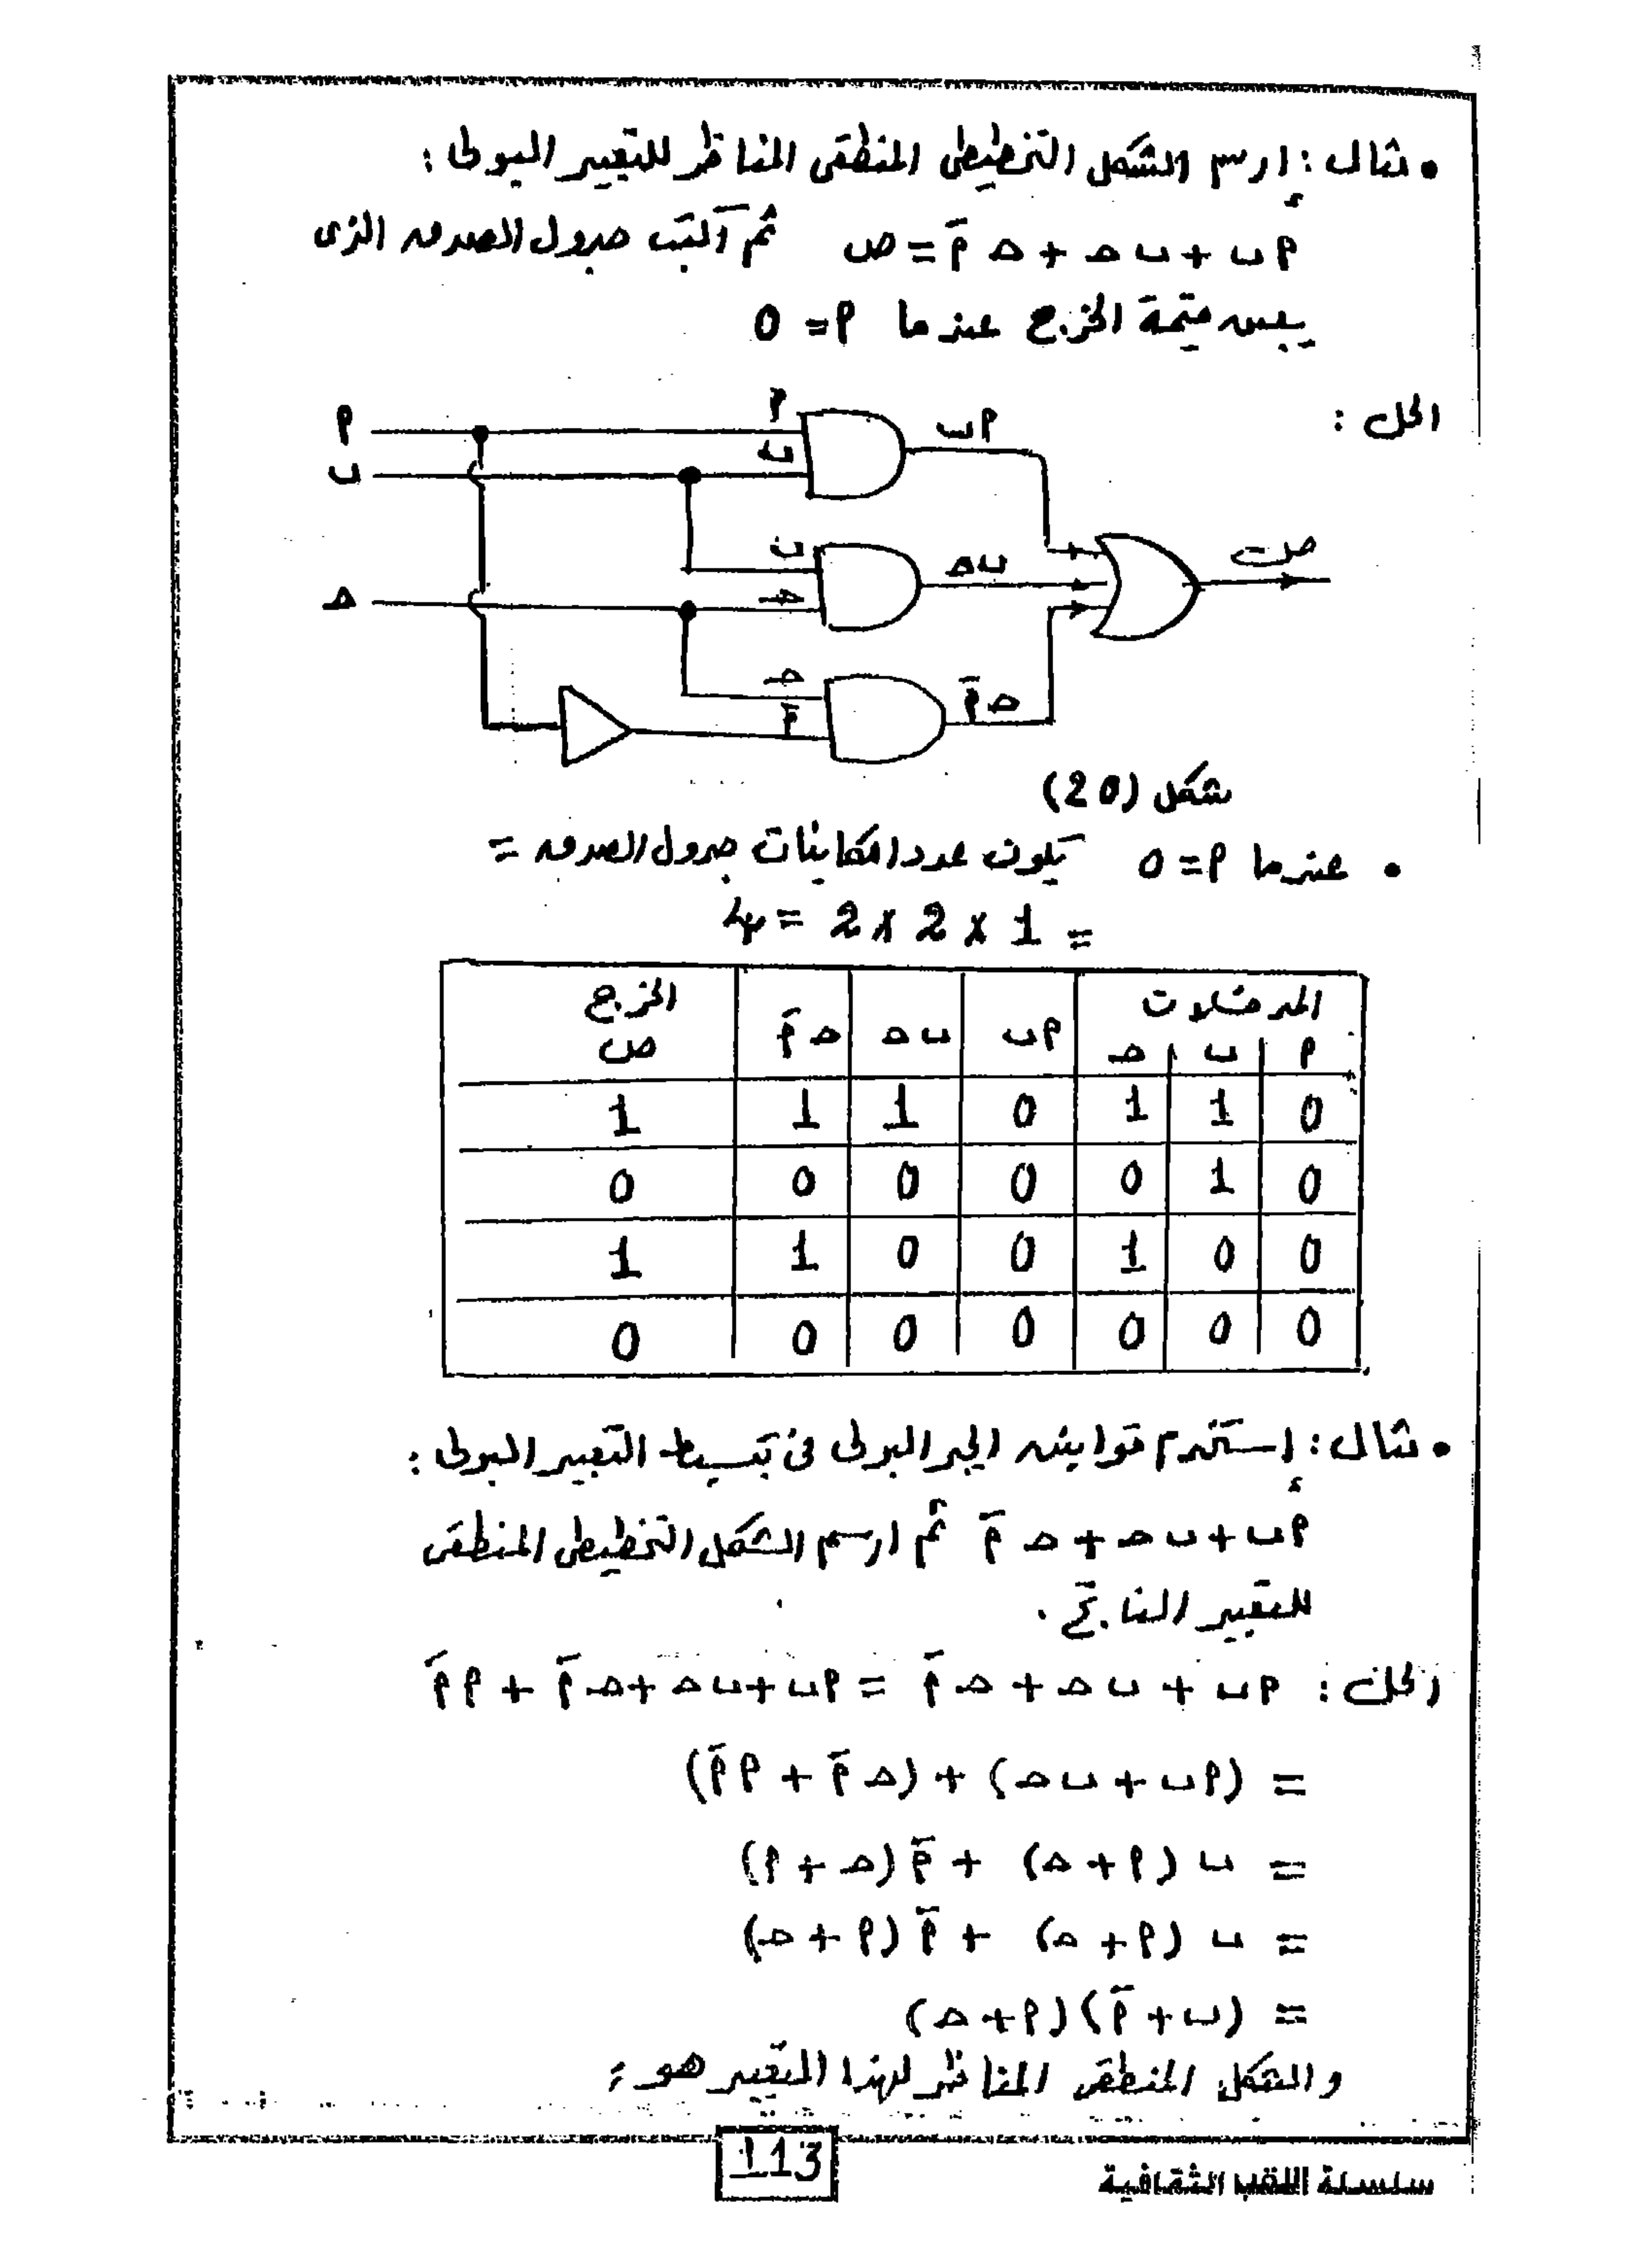 • مثال : إرسم الشكل التخطيطى المنطقى المناظر للتعبير البولى :
أ ب + ب حـ + حـ أَ = ص ثم أكتب جدول الصدق الذى
يبين قيمة الخرج عندما أ = 0
الحل :
أ
ب
حـ
أ
ب
أ ب
ب
حـ
ب حـ
حـ
أَ
حـ أَ
ص
شكل (20)
• عندما أ = 0 يكون عدد امكانيات جدول الصدق =
= 1 × 2 × 2 = 4
المدخلات أ ب ب حـ حـ أَ الخرج
أ ب حـ ص
0 1 1 0 1 1 1
0 1 0 0 0 0 0
0 0 1 0 0 1 1
0 0 0 0 0 0 0
• مثال : إستخدم قوانين الجبر البولى فى تبسيط التعبير البولى :
أ ب + ب حـ + حـ أَ ثم ارسم الشكل التخطيطى المنطقى
للتعبير الناتج .
الحل : أ ب + ب حـ + حـ أَ = أ ب + ب حـ + حـ أَ + أ أَ
= (أ ب + ب حـ) + (حـ أَ + أ أَ)
= ب (أ + حـ) + أَ (حـ + أ)
= ب (أ + حـ) + أَ (أ + حـ)
= (ب + أَ) (أ + حـ)
والشكل المنطقى المناظر لهذا التعبير هو :
113
سلسلة اللقب الثقافية